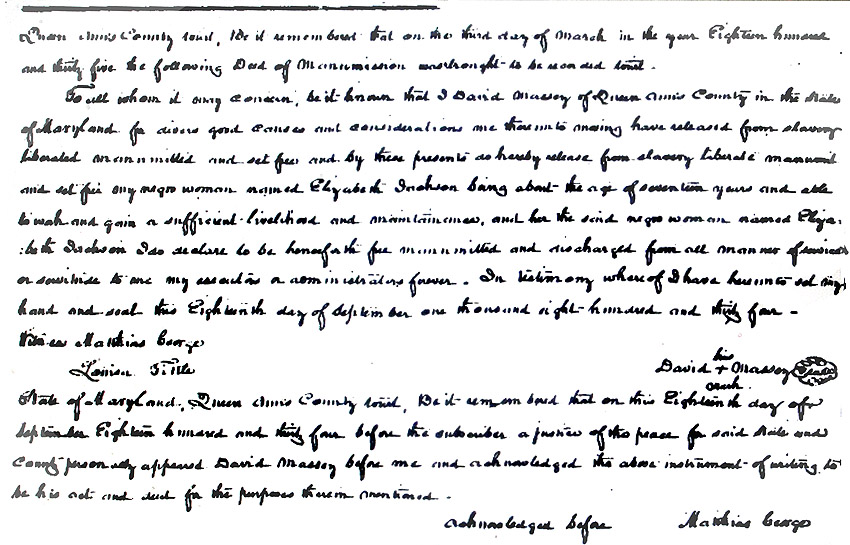 Queen Ann's County to wit, Be it remembered that on the third day of March in the year Eighteen hundred
and thirty five the following Deed of Manumission was brought to be recorded to wit.
To all whom it may concern, be it known that I David Massey of Queen Ann's County in the State
of Maryland for divers good causes and considerations me thereunto moving have released from slavery
liberated manumitted and set free and by these presents do hereby release from slavery liberate manumit
and set free my negro woman named Elizabeth Jackson being about the age of seventeen years and able
to work and gain a sufficient livelihood and maintainance, and her the said negro woman named Eliza:
:beth Jackson I do declare to be henceforth free manumitted and discharged from all manner of service
or servitude to me my executors or administrators forever. In testimony whereof I have hereunto set my
hand and seal this Eighteenth day of September one thousand eight hundred and thirty four -
Witness Matthias George
Louisa
his
David + Massey Seal
mark.
State of Maryland, Queen Ann's County to wit, Be it remembered that on this Eighteenth day of
September Eighteen hundred and thirty four before the subscriber a justice of the peace for said State and
County personally appeared David Massey before me and acknowledged the above instrument of writing to
be his act and deed for the purposes therein mentioned.
acknowledged before Matthias George